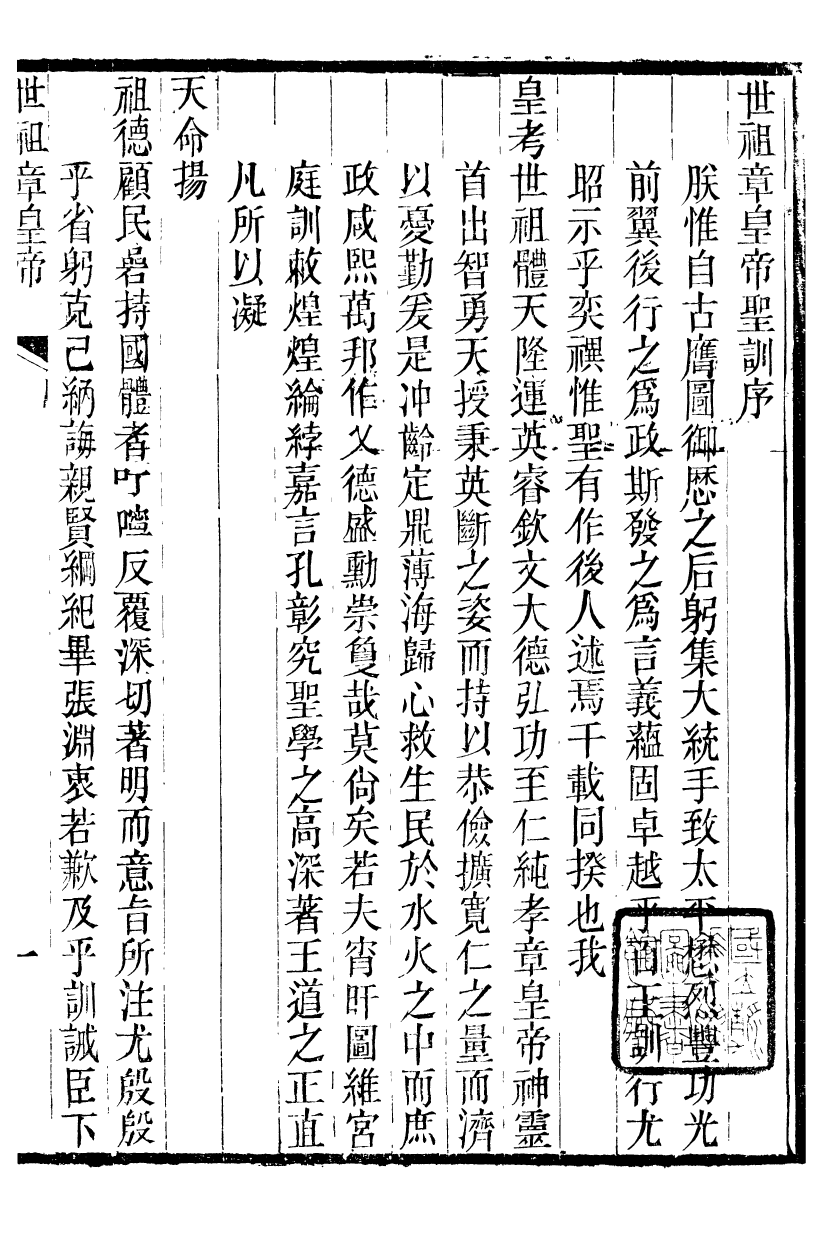 世祖章皇帝聖訓序
朕惟自古膺圖御厯之后躬集大統手致太平懋烈豐功光
前翼後行之爲政斯發之爲言義蘊固卓越乎百王訓行尤
昭示乎奕禩惟聖有作後人述焉千載同揆也我
皇考世祖體天隆運英睿欽文大德弘功至仁純孝章皇帝神靈
首出智勇天授秉英斷之姿而持以恭儉擴寬仁之量而濟
以憂勤爰是冲齡定鼎薄海歸心救生民於水火之中而庶
政咸熙萬邦作乂德盛勳崇敻哉莫尙矣若夫宵旰圖維宮
庭訓敕煌煌綸綍嘉言孔彰究聖學之高深著王道之正直
凡所以凝
天命揚
祖德顧民碞持國體者叮嚀反覆深切著明而意旨所注尤殷殷
乎省躬克己納誨親賢綱紀畢張淵衷若歉及乎訓誡臣下
世祖章皇帝
一